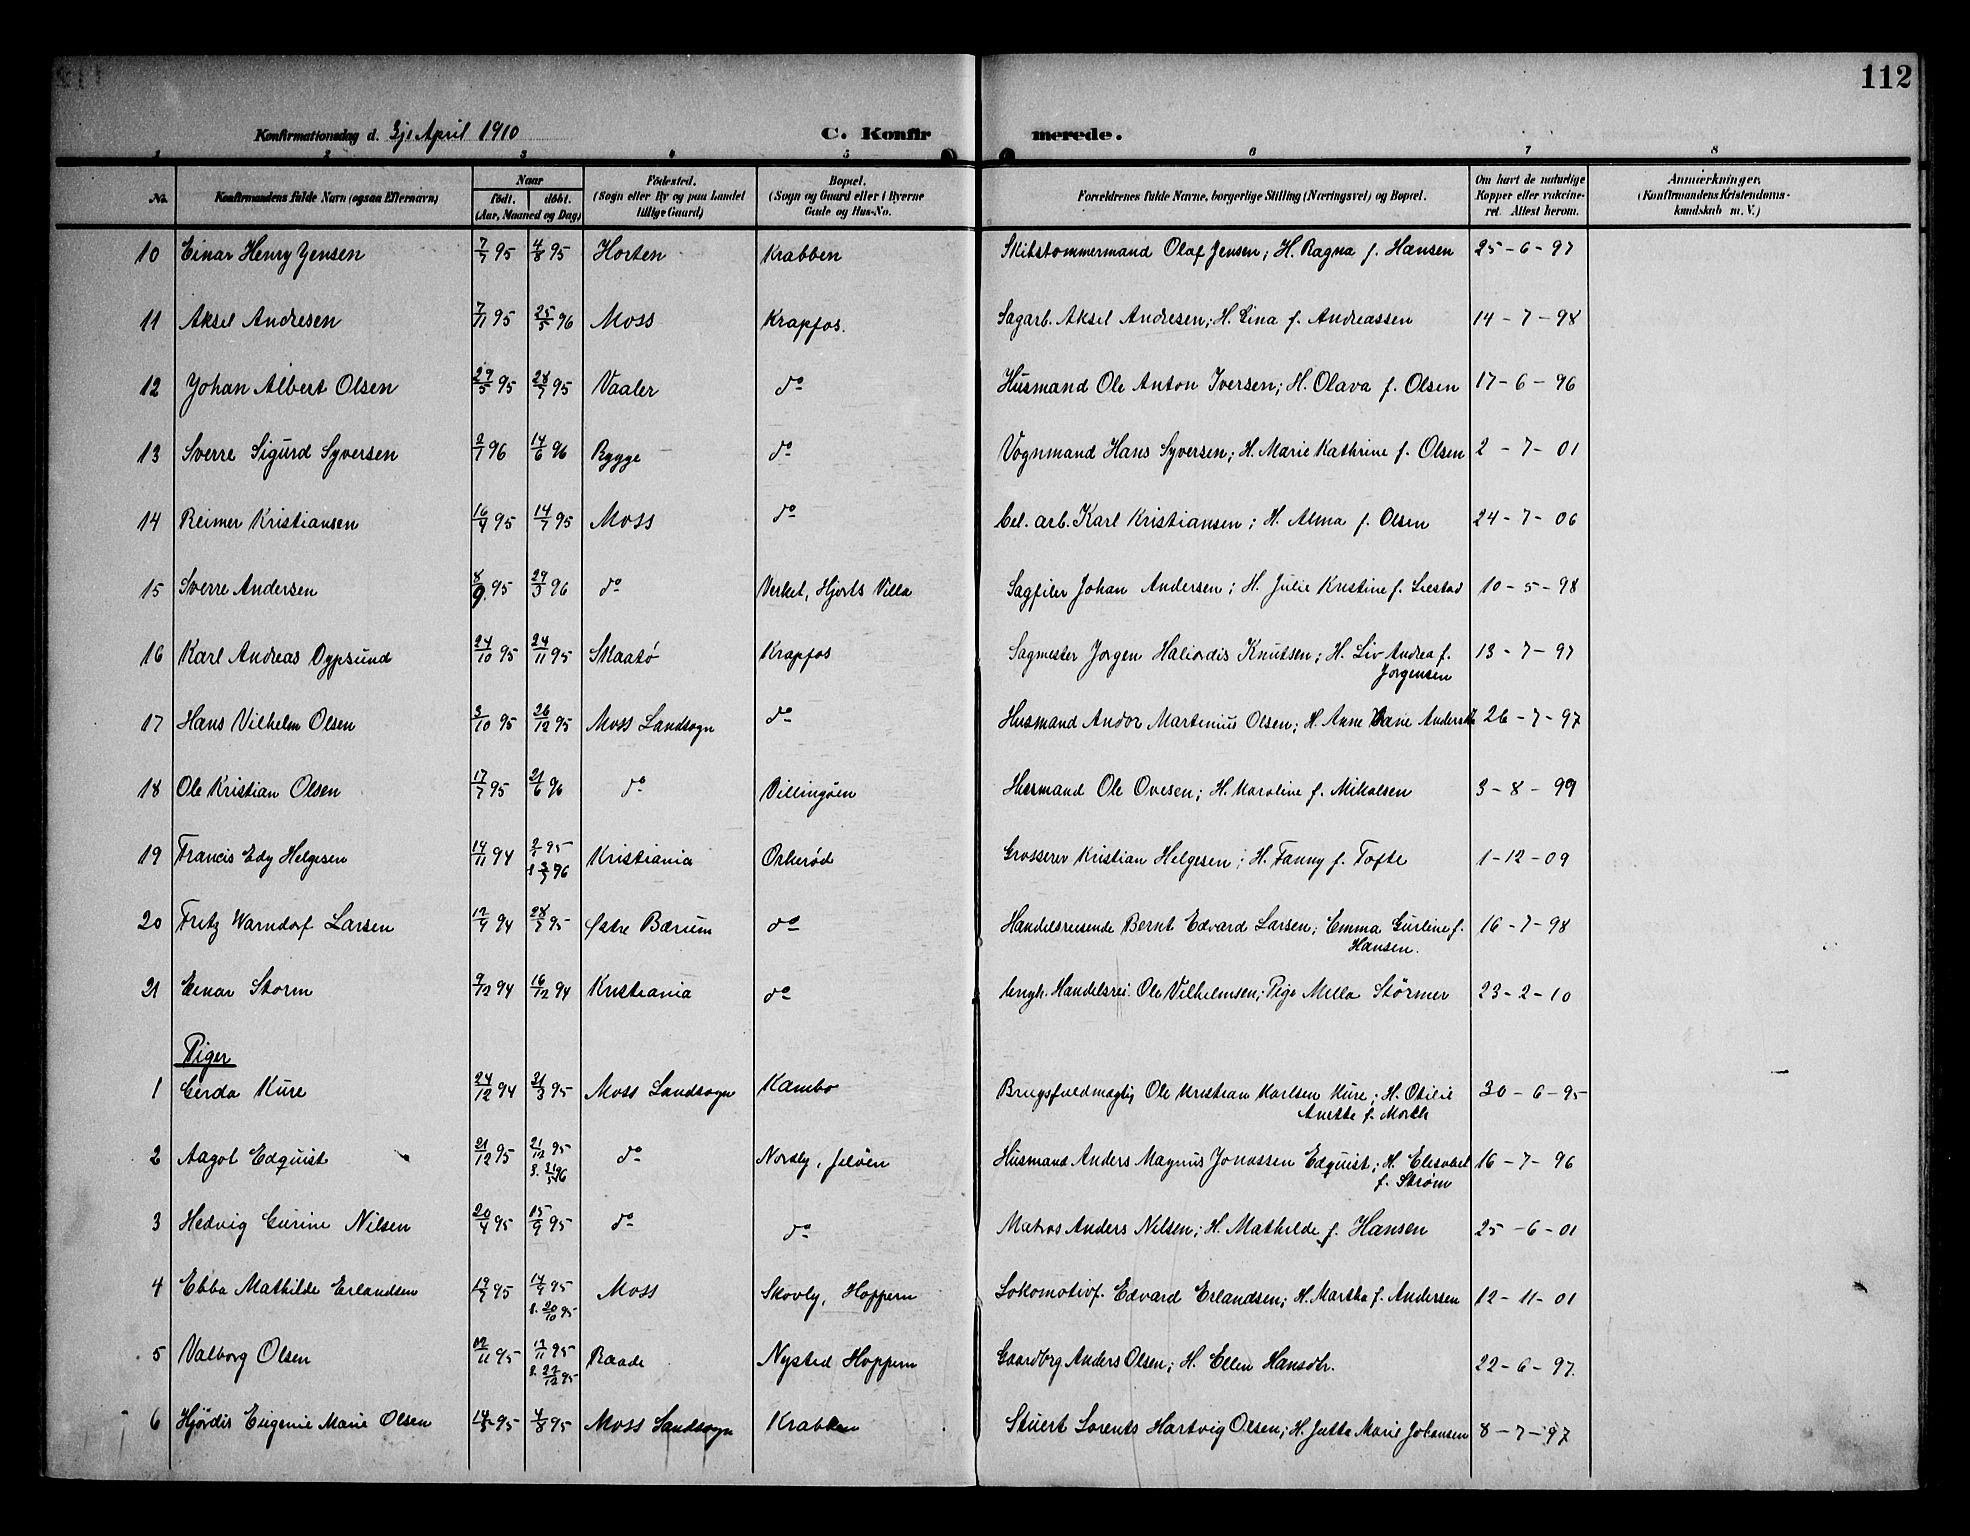 112
Konfirmationsdag d. 3je April 1910 C. Konfirmerede.
1 2 3 4 5 6 7 8
No. Konfirmandens fulde Navn (ogsaa Efternavn) Naar født. døbt. (Aar, Maaned og Dag) Fødested. (Sogn eller By og paa Landet tillige Gaard) Bopæl. (Sogn og Gaard eller i Byerne Gade og Hus-No. Forældrenes fulde Navne, borgerlige Stilling (Næringsvei) og Bopæl. Om havt de naturlige Kopper eller vaccineret. Attest herom. Anmærkninger. (Konfirmandens Kristendomskundskab m. V.)
10 Einar Henry Jensen 7/7 95 4/8 95 Horten Krabben Skibstømmermand Olaf Jensen; H. Ragna f. Hansen 25-6-97
11 Aksel Andresen 7/11 95 25/5 96 Moss Krapfos. Sagarb. Aksel Andresen; H. Lina f. Andreassen 14-7-98
12 Johan Albert Olsen 29/5 95 28/7 95 Vaaler do Husmand Ole Anton Iversen; H. Olava f. Olsen 17-6-96
13 Sverre Sigurd Syversen 2/1 96 14/6 96 Rygge do Vognmand Hans Syversen; H. Marie Kathrine f. Olsen 2-7-01
14 Reimer Kristiansen 16/4 95 14/7 95 Moss do Cel. arb. Karl Kristiansen; H. Alma f. Olsen 24-7-06
15 Sverre Andersen 8/9 95 29/3 96 do Verket, Hjorts Villa Sagfiler Johan Andersen; H. Julie Kristine f. Liestad 10-5-98
16 Karl Andreas Dypsund 24/10 95 24/11 95 Skaatø Krapfos Sagmester Jørgen Haliordis Knutsen; H. Liv Andrea f. Jørgensen 13-7-97
17 Hans Vilhelm Olsen 3/10 95 26/12 95 Moss Landsogn do Husmand Andor Martinius Olsen; H. Anne 26-7-97
18 Ole Kristian Olsen 17/7 95 21/6 96 do Billingøen Husmand Ole Ovesen; H. Karoline f. Mikalsen 3-8-99
19 Francis Edy Helgesen 14/11 94 95 96 Kristiania Orkerød Grosserer Kristian Helgesen; H. Fanny f. Tofte 1-12-09
20 Fritz Warndorf Larsen 12/4 94 95 Østre Bærum do Handelsreisende Bernt Edvard Larsen; Emma Gurline f. Hansen. 16-7-98
21 Einar Storm 9/12 94 16/12 94 Kristiania do Ungk. Handelsrei. Ole Vilhelmsen; Pige Milla Störmer 23-2-10
Piger
1 Gerda Kure 24/12 94 31/3 95 Moss Landsogn Kambo Brugsfuldmægtig Ole Kristian Karlsen Kure; H. Otilie Anette f. Mørch 30-6-95
2 Aagot Edquist 21/12 95 21/12 95 do Nordby, Jeløen Husmand Anders Magnus Jonassen Edquist; H. Elisabet f. Strøm 16-7-96
3 Hedvig Gurine Nilsen 20/4 95 15/9 95 do do Matros Anders Nilsen; H. Mathilde f. Hansen 25-6-01
4 Ebba Mathilde Erlandsen 95 95 20/10 95 Moss Skovly, Hoppern Lokomotivf. Edvard Erlandsen; H. Martha f. Andersen 12-11-01
5 Valborg Olsen 95 95 22/12 95 Raade Nysted Hoppern Gaardbrg Anders Olsen; H. Ellen Hansdtr. 22-6-97.
6 Hjørdis Eugenie Marie Olsen 95 4/8 95 Moss Landsogn Krabben Stuert Lorents Hartvig Olsen; H. Jutta Marie Johansen 8-7-97